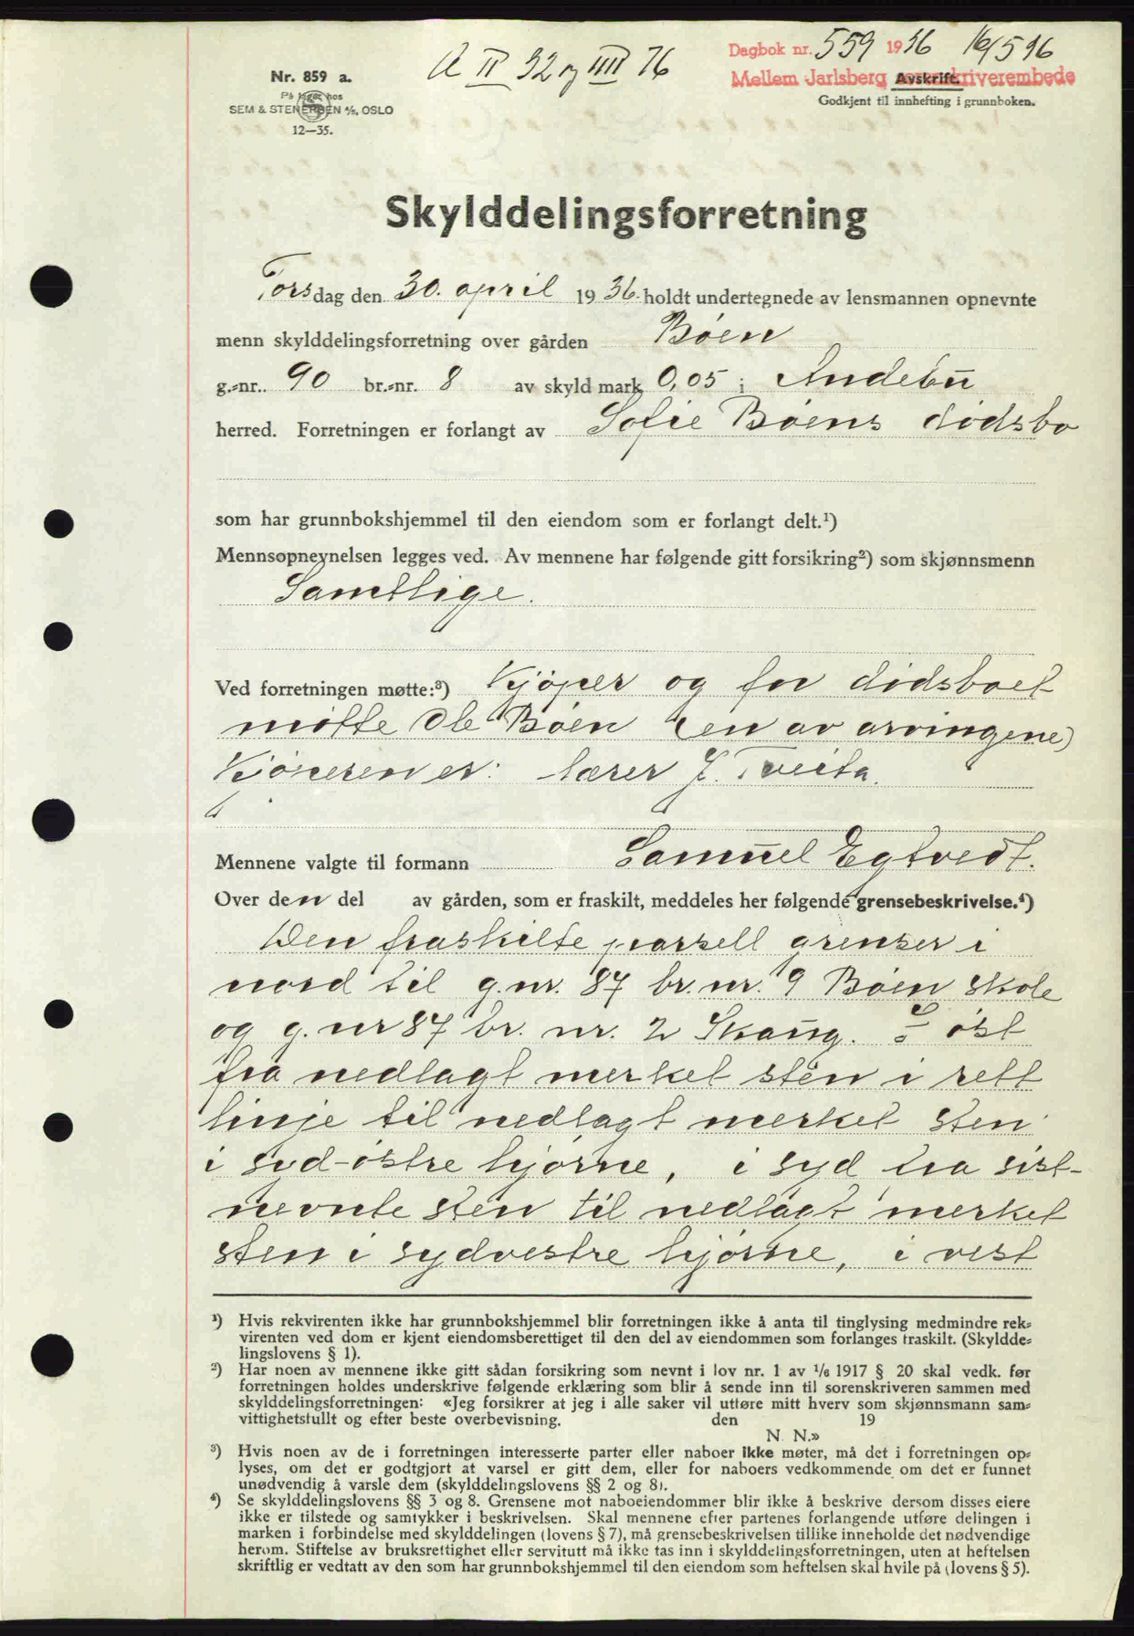 A II 32 og IIII 76
Dagbok nr. 559 1936 16/5 96
Nr. 859 a.
På lager hos
SEM & STENERSEN A/S, OSLO
12—35.
Mellem Jarlsberg sorenskriverembede
Avskrift.
Godkjent til innhefting i grunnboken.
Skylddelingsforretning
Torsdag den 30. april 1936 holdt undertegnede av lensmannen opnevnte
menn skylddelingsforretning over gården Bøen
g.-nr. 90 br.-nr. 8 av skyld mark 0,05 i Andebu
herred. Forretningen er forlangt av Sofie Bøens dødsbo
som har grunnbokshjemmel til den eiendom som er forlangt delt.¹)
Mennsopneynelsen legges ved. Av mennene har følgende gitt forsikring²) som skjønnsmenn
Samtlige.
Ved forretningen møtte:³) Kjøper og for dødsboet
møtte Ole Bøen (en av arvingene)
Kjøperen er: lærer J. Tveita.
Mennene valgte til formann Samuel Egtvedt.
Over den del av gården, som er fraskilt, meddeles her følgende grensebeskrivelse.⁴)
Den fraskilte parsell grenser i
nord til g.nr. 87 br.nr. 9 Bøen skole
og g.nr 87 br. nr. 2 Skaug. I øst
fra nedlagt merket sten i rett
linje til nedlagt merket sten
i syd-østre hjørne, i syd fra sist-
nevnte sten til nedlagt merket
sten i sydvestre hjørne, i vest
¹) Hvis rekvirenten ikke har grunnbokshjemmel blir forretningen ikke å anta til tinglysing medmindre rek-
virenten ved dom er kjent eiendomsberettiget til den del av eiendommen som forlanges fraskilt. (Skyldde-
lingslovens § 1).
²) Har noen av mennene ikke gitt sådan forsikring som nevnt i lov nr. 1 av 1/6 1917 § 20 skal vedk. før
forretningen holdes underskrive følgende erklæring som blir å sende inn til sorenskriveren sammen med
skylddelingsforretningen: «Jeg forsikrer at jeg i alle saker vil utføre mitt hverv som skjønnsmann sam-
vittighetsfullt og efter beste overbevisning. den 19
N. N.»
³) Hvis noen av de i forretningen interesserte parter eller naboer ikke møter, må det i forretningen op-
lyses, om det er godtgjort at varsel er gitt dem, eller for naboers vedkommende om det er funnet
unødvendig å varsle dem (skylddelingslovens §§ 2 og 8).
⁴) Se skylddelingslovens §§ 3 og 8. Grensene mot naboeiendommer blir ikke å beskrive dersom disses eiere
ikke er tilstede og samtykker i beskrivelsen. Skal mennene efter partenes forlangende utføre delingen i
marken i forbindelse med skylddelingen (lovens § 7), må grensebeskrivelsen tillike inneholde det nødvendige
herom. Stiftelse av bruksrettighet eller servitutt må ikke tas inn i skylddelingsforretningen, uten at heftelsen
skriftlig er vedtatt av den som har grunnbokshjemmel til den eiendom som heftelsen skal hvile på (lovens § 5).